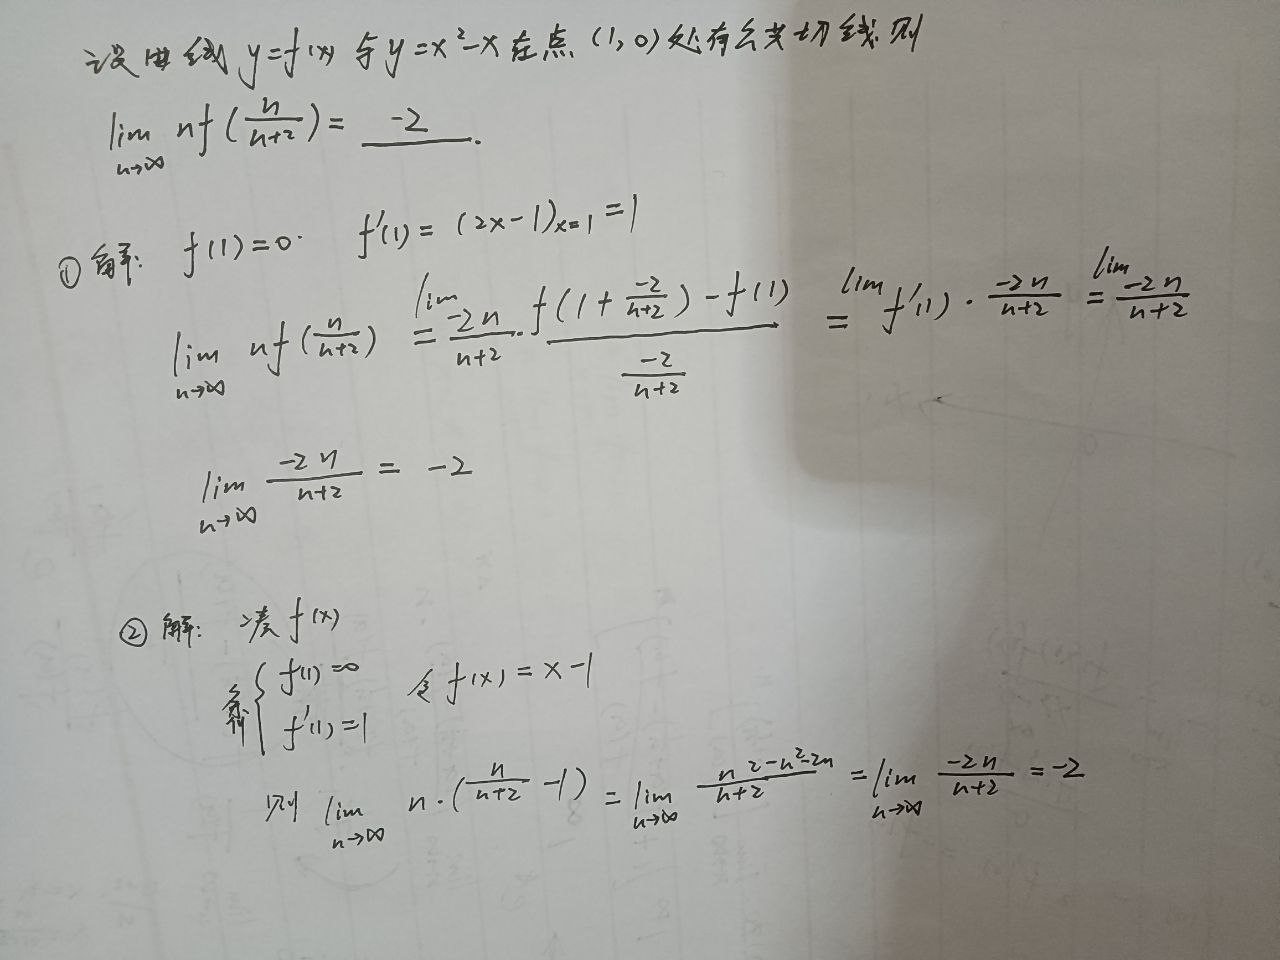 设曲线 y=f(x) 与 y=x²-x 在点 (1,0) 处有公共切线. 则
lim n→∞ nf(n/(n+2)) = -2.
① 解: f(1)=0. f'(1)=(2x-1)x=1 =1
lim n→∞ nf(n/(n+2)) = lim -2n/(n+2) · (f(1+ -2/(n+2))-f(1))/(-2/(n+2)) = lim f'(1)· -2n/(n+2) = lim -2n/(n+2)
lim n→∞ -2n/(n+2) = -2
② 解: 凑 f(x)
条件 { f(1)=0 令 f(x)=x-1
f'(1)=1
则 lim n→∞ n·(n/(n+2) -1) = lim n→∞ (n²-n²-2n)/(n+2) = lim n→∞ -2n/(n+2) = -2